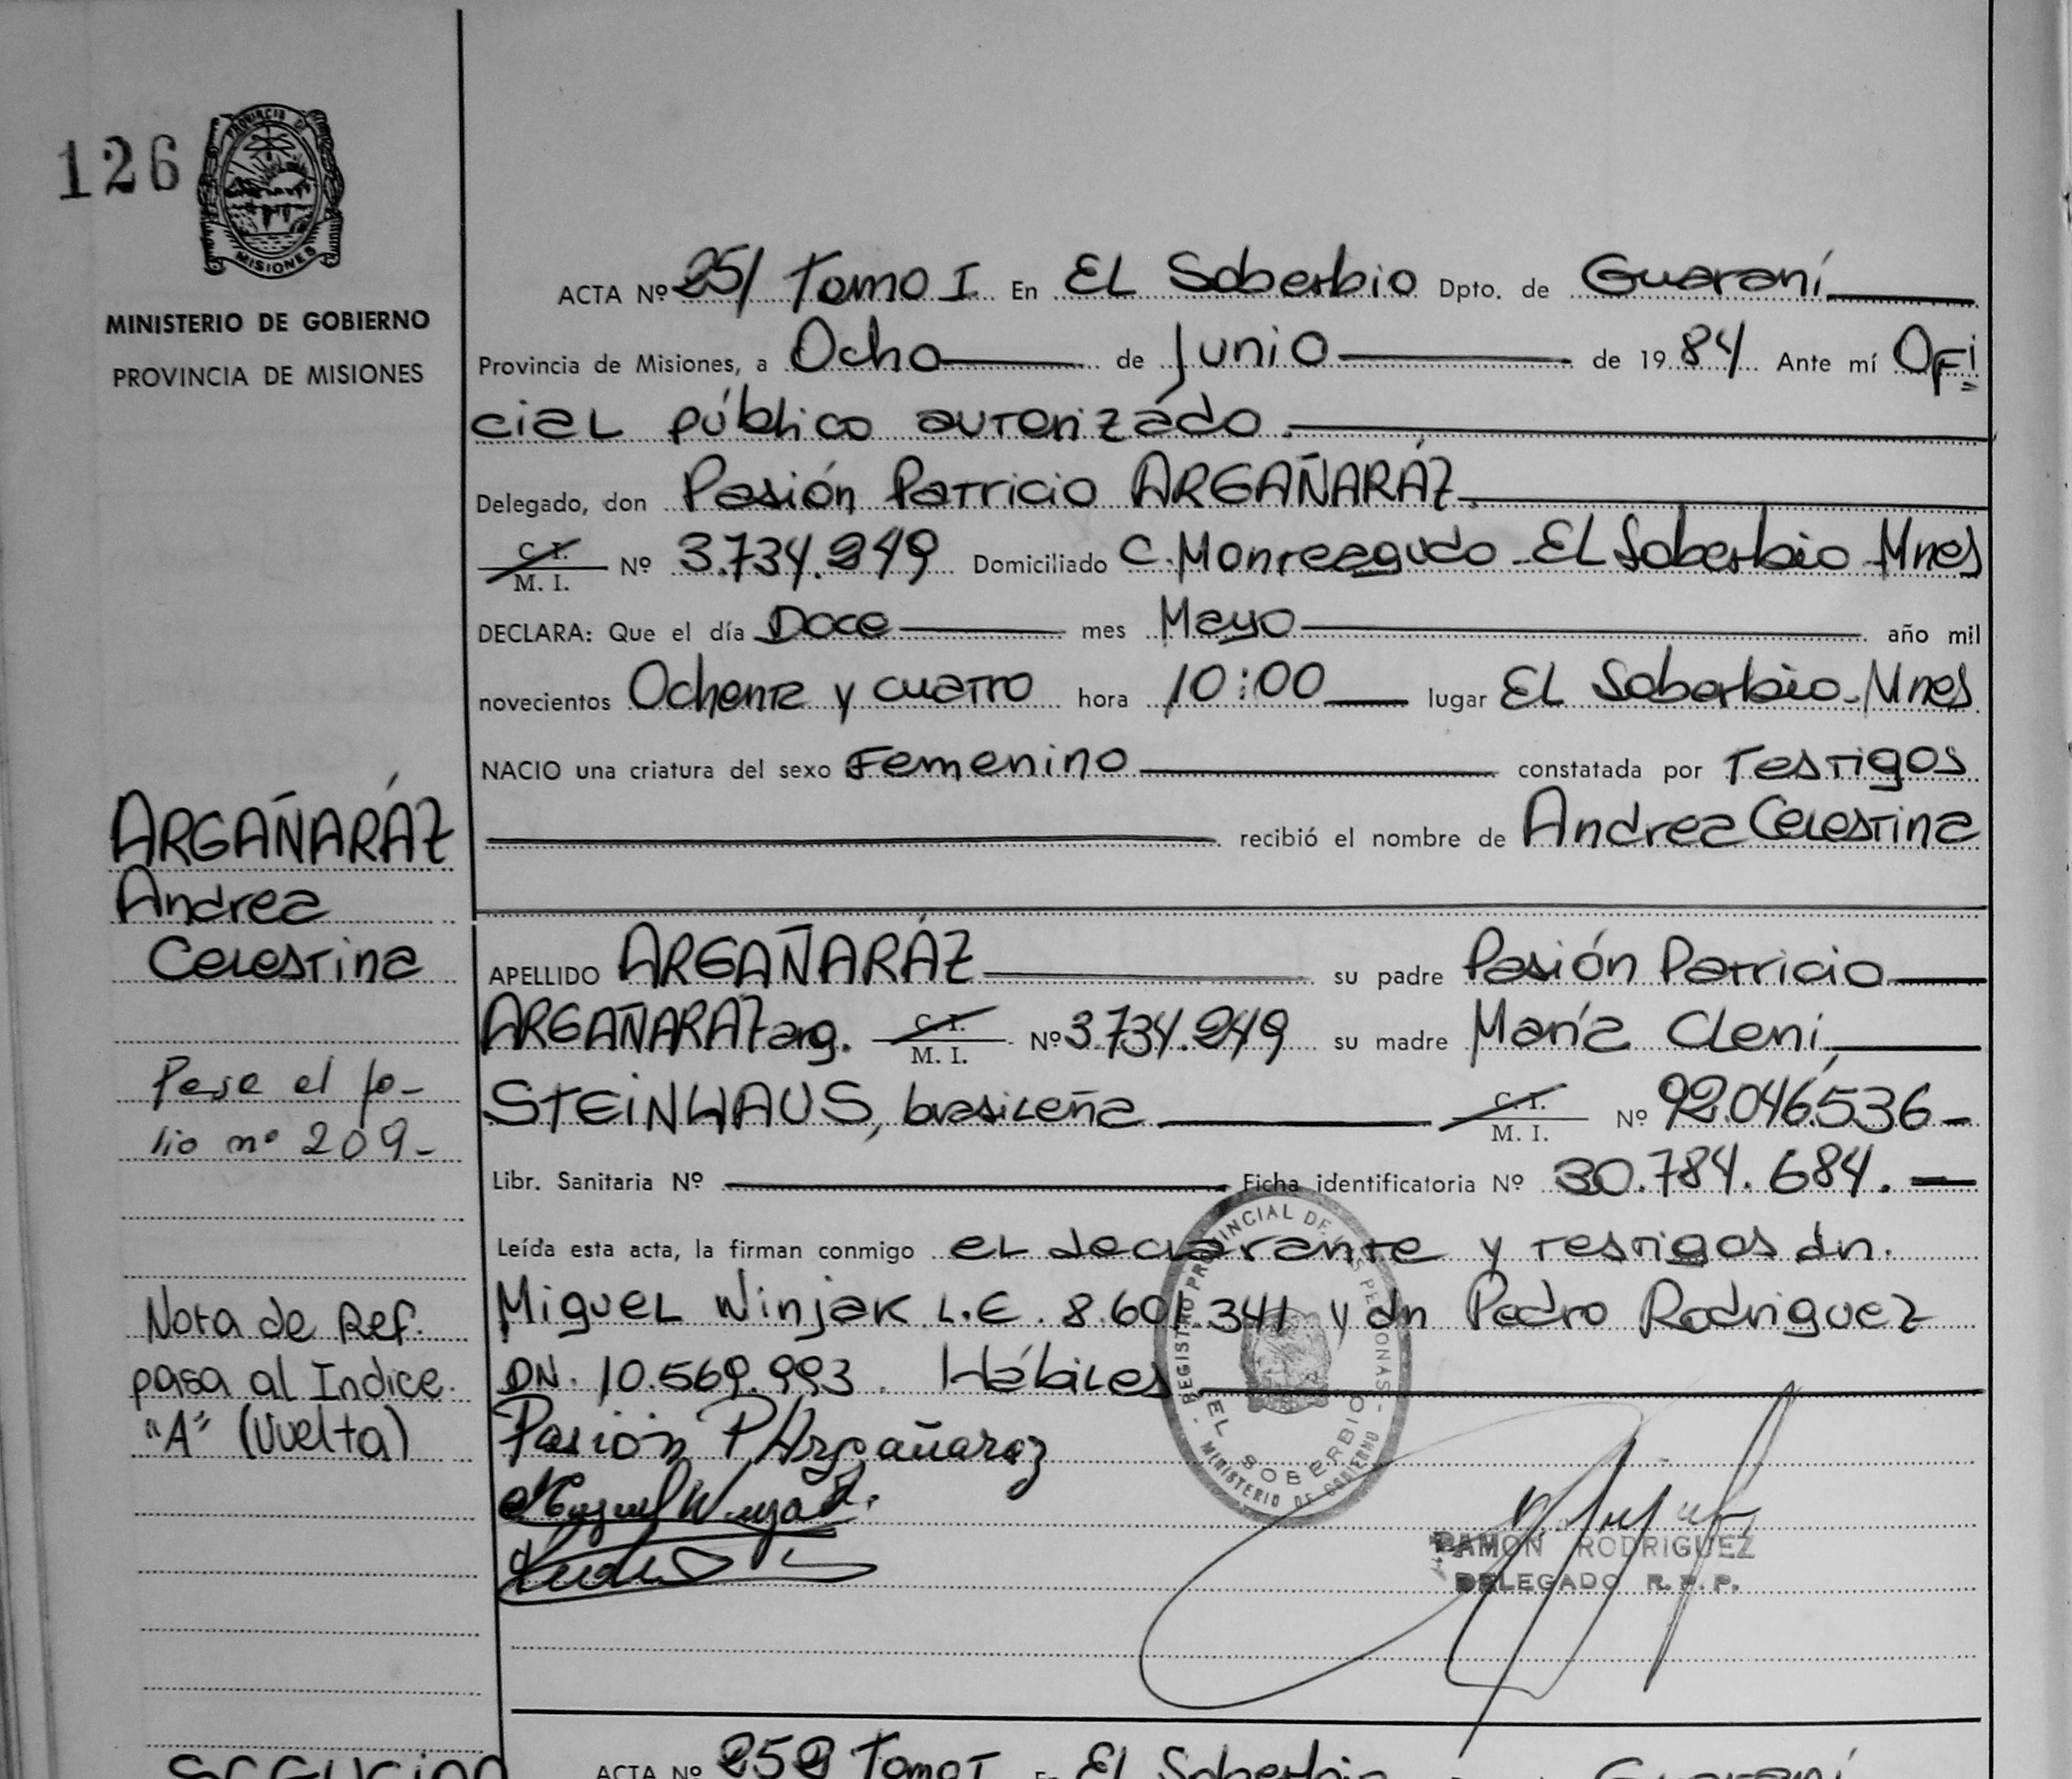 126
PROVINCIA DE
MISIONES
MINISTERIO DE GOBIERNO
PROVINCIA DE MISIONES
ACTA Nº 251 Tomo I En El Soberbio Dpto. de Guaraní
Provincia de Misiones, a Ocho de Junio de 1984 Ante mí Ofi
cial público autorizado.
Delegado, don Pasión Patricio ARGAÑARÁZ
C. I. / M. I. Nº 3.734.249 Domiciliado C. Monteagudo - El Soberbio Mnes
DECLARA: Que el día Doce mes Mayo año mil
novecientos Ochenta y cuatro hora 10:00 lugar El Soberbio - Mnes
NACIO una criatura del sexo Femenino constatada por Testigos
recibió el nombre de Andrea Celestina
ARGAÑARÁZ
Andrea
Celestina
APELLIDO ARGAÑARÁZ su padre Pasión Patricio
ARGAÑARAZ arg. C. I. / M. I. Nº 3.734.249 su madre María Cleni,
STEINHAUS, brasileña C. I. / M. I. Nº 92.046.536 -
Pase el fo-
lio nº 209-
Libr. Sanitaria Nº Ficha identificatoria Nº 30.784.684. -
Leída esta acta, la firman conmigo el declarante y testigos dn.
Miguel Winjak L.E. 8.601.341 y dn Pedro Rodriguez
DN. 10.569.993. Hábiles
Nota de Ref.
pasa al Indice
"A" (Vuelta)
Pasión P Argañaraz
Miguel Winjak.
REGISTRO PROVINCIAL DE LAS PERSONAS
EL SOBERBIO
MINISTERIO DE GOBIERNO
RAMON RODRIGUEZ
DELEGADO R. P. P.
ACTA Nº 252 Tomo I En El Soberbio Guaraní